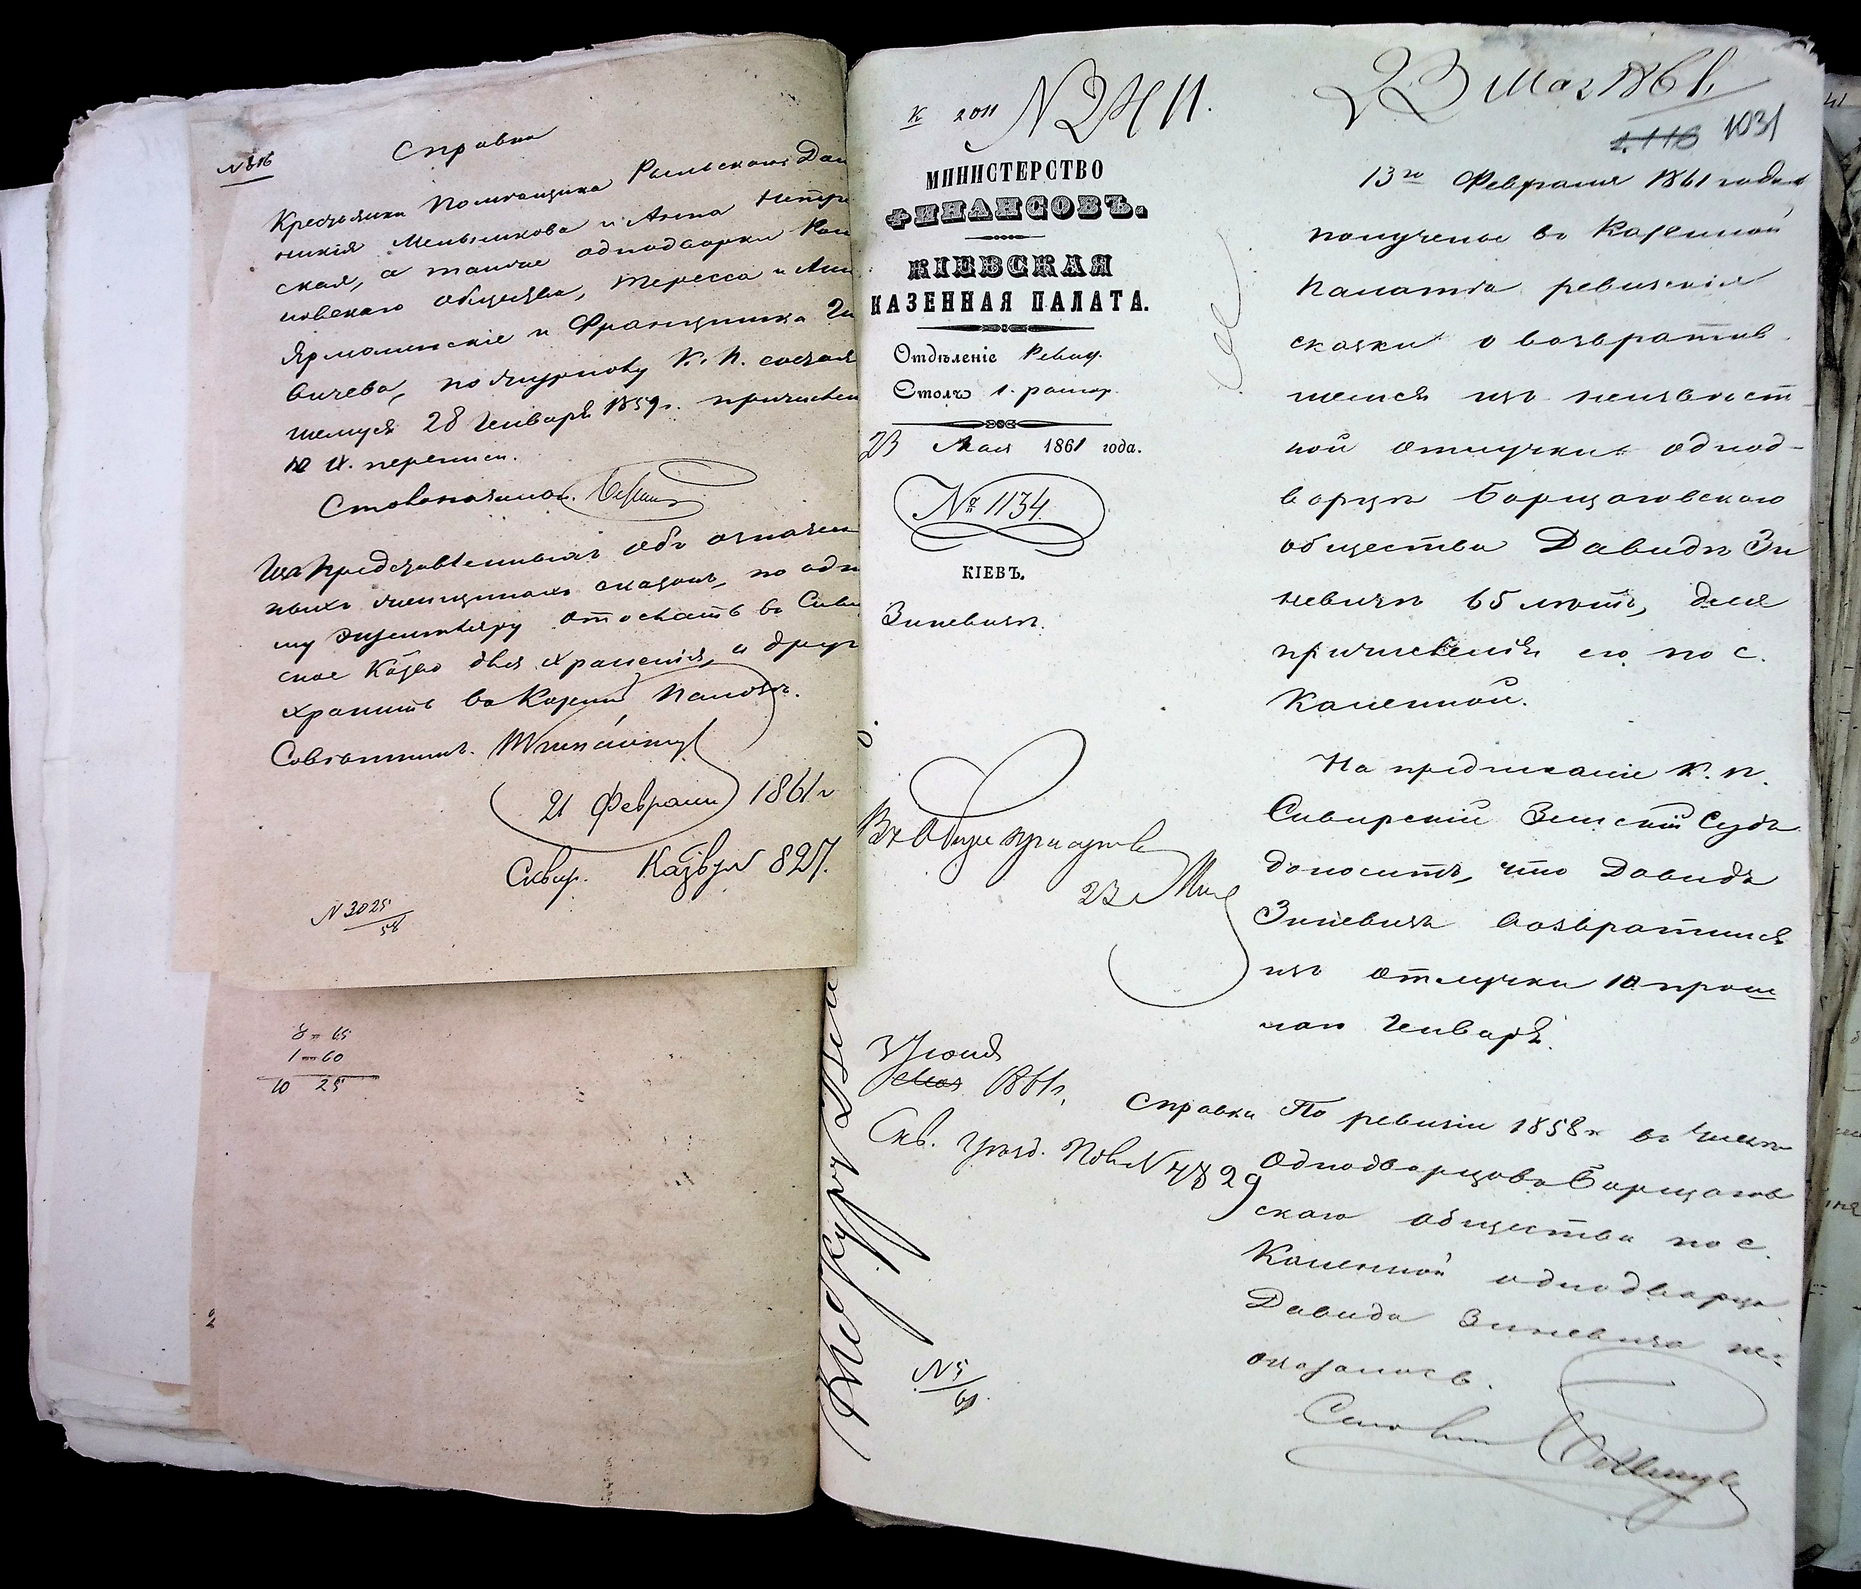 № 816
Справка
Крестьянки Помѣщика Рыльскаго Дом
никія Мельникова и Анна Петри
ская, а также однодворки Ром
новскаго общества, Тересса и Анн
Ярмолинскіе и Францишка
вичева, по журналу К. П. состоя
шемуся 28 Генваря 1859 г. причислен
по X. переписи.
Столоначал.
Изъ представленныхъ объ означен
ныхъ женщинахъ сказокъ, по одно
му экземпляру отослать въ Скви
ское Казнво для храненія, а другіе
хранить въ Казенной Палатѣ.
Совѣтникъ.
21 Февраля 1861 г
Сквир. Казву № 827.
№ 3025
58
8 — 65
1 — 60
10 25
К 2011 № 2411.
23 Мая 1861
1031
МИНИСТЕРСТВО
ФИНАНСОВЪ.
КІЕВСКАЯ
КАЗЕННАЯ ПАЛАТА.
Отдѣленіе Ревиз.
Столъ 1.
23 Мая 1861 года.
№ 1134
КІЕВЪ.
Зиневичъ.
23 Мая
3 Іюня
Мая 1861 г.
Скв. Уѣзд. № 4829
№ 5
61
13го Февраля 1861 года
получены въ Казенной
Палатѣ ревизскія
сказки о возвратив
шемся изъ неизвѣст
ной отлучки однод-
ворцѣ Борщаговскаго
общества Давидѣ Зи
невичѣ 65 лѣтъ, для
причисленія его по с.
Каменной.
На предписаніе К. П.
Сквирскій Земскій Судъ
доноситъ, что Давидъ
Зиневичъ возвратился
изъ отлучки 10 прош
лаго Генваря.
Справка По ревизіи 1858 г въ числѣ
однодворцовъ Борщагов
скаго общества по с.
Каменной однодворца
Давида Зиневича не-
оказалось.